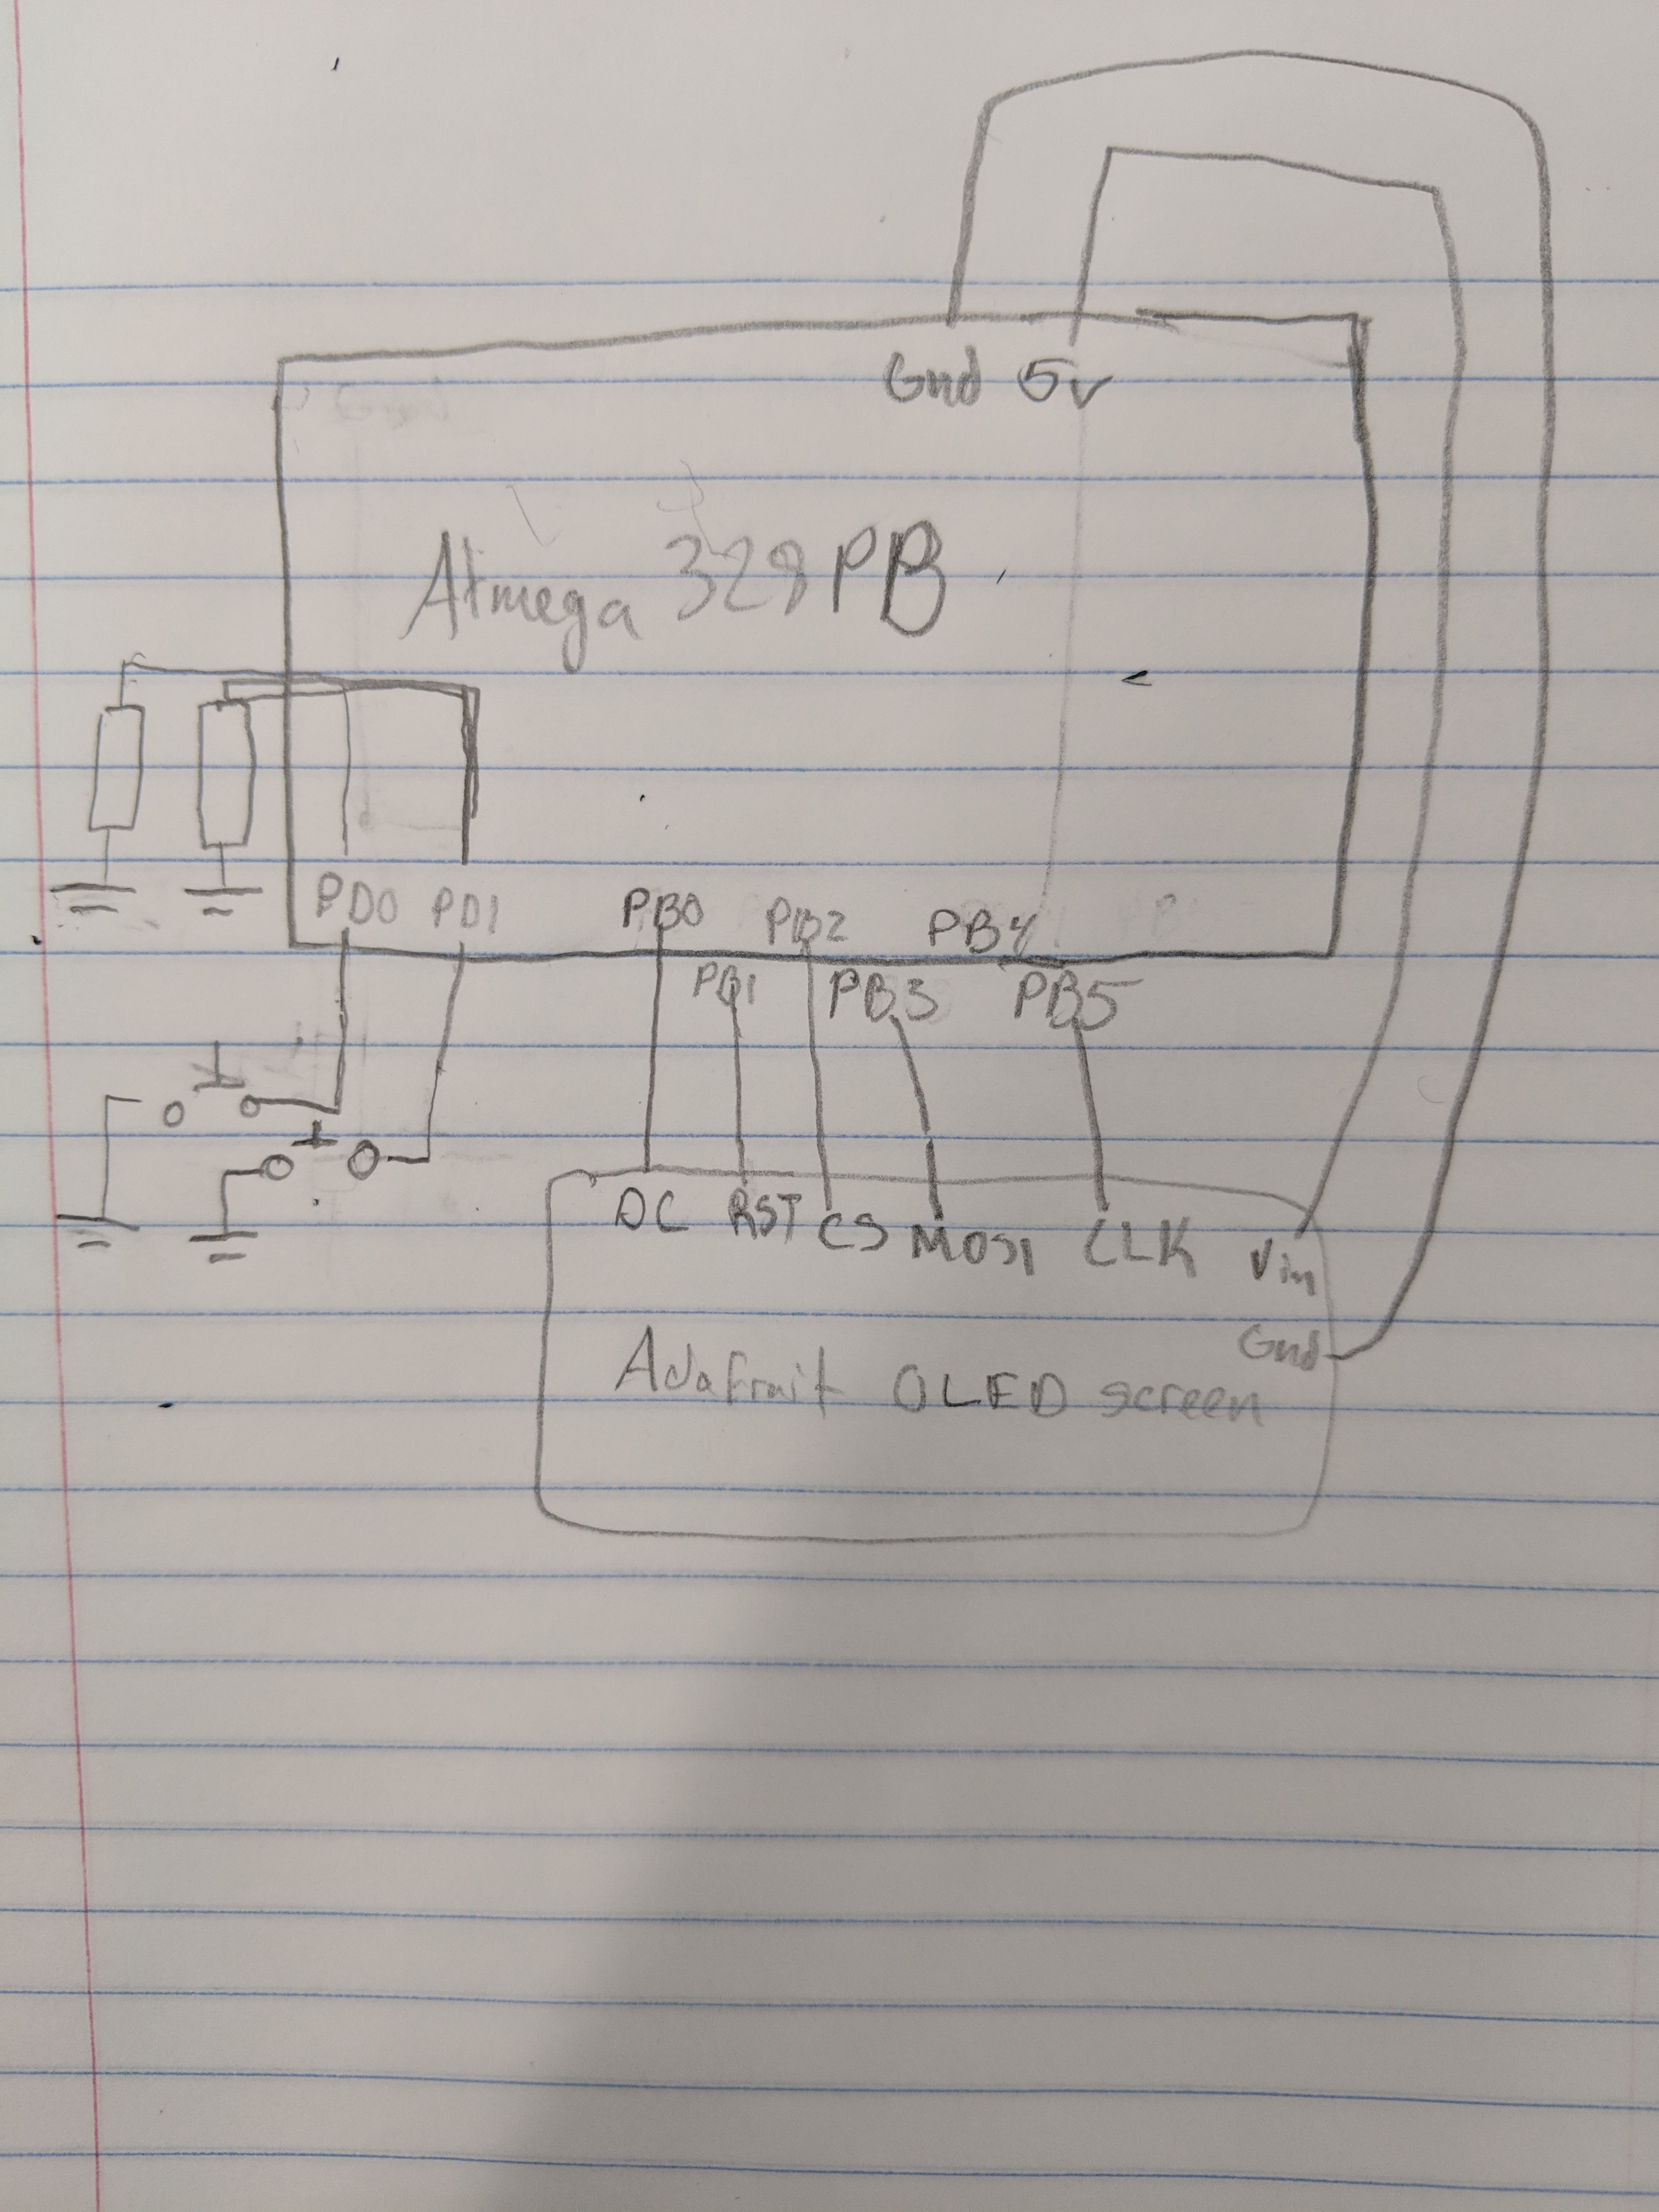 Gnd 5v
Atmega 328PB
PD0 PD1 PB0 PB2 PB4
PB1 PB3 PB5
DC RST CS MOSI CLK Vin
Gnd
Adafruit OLED screen